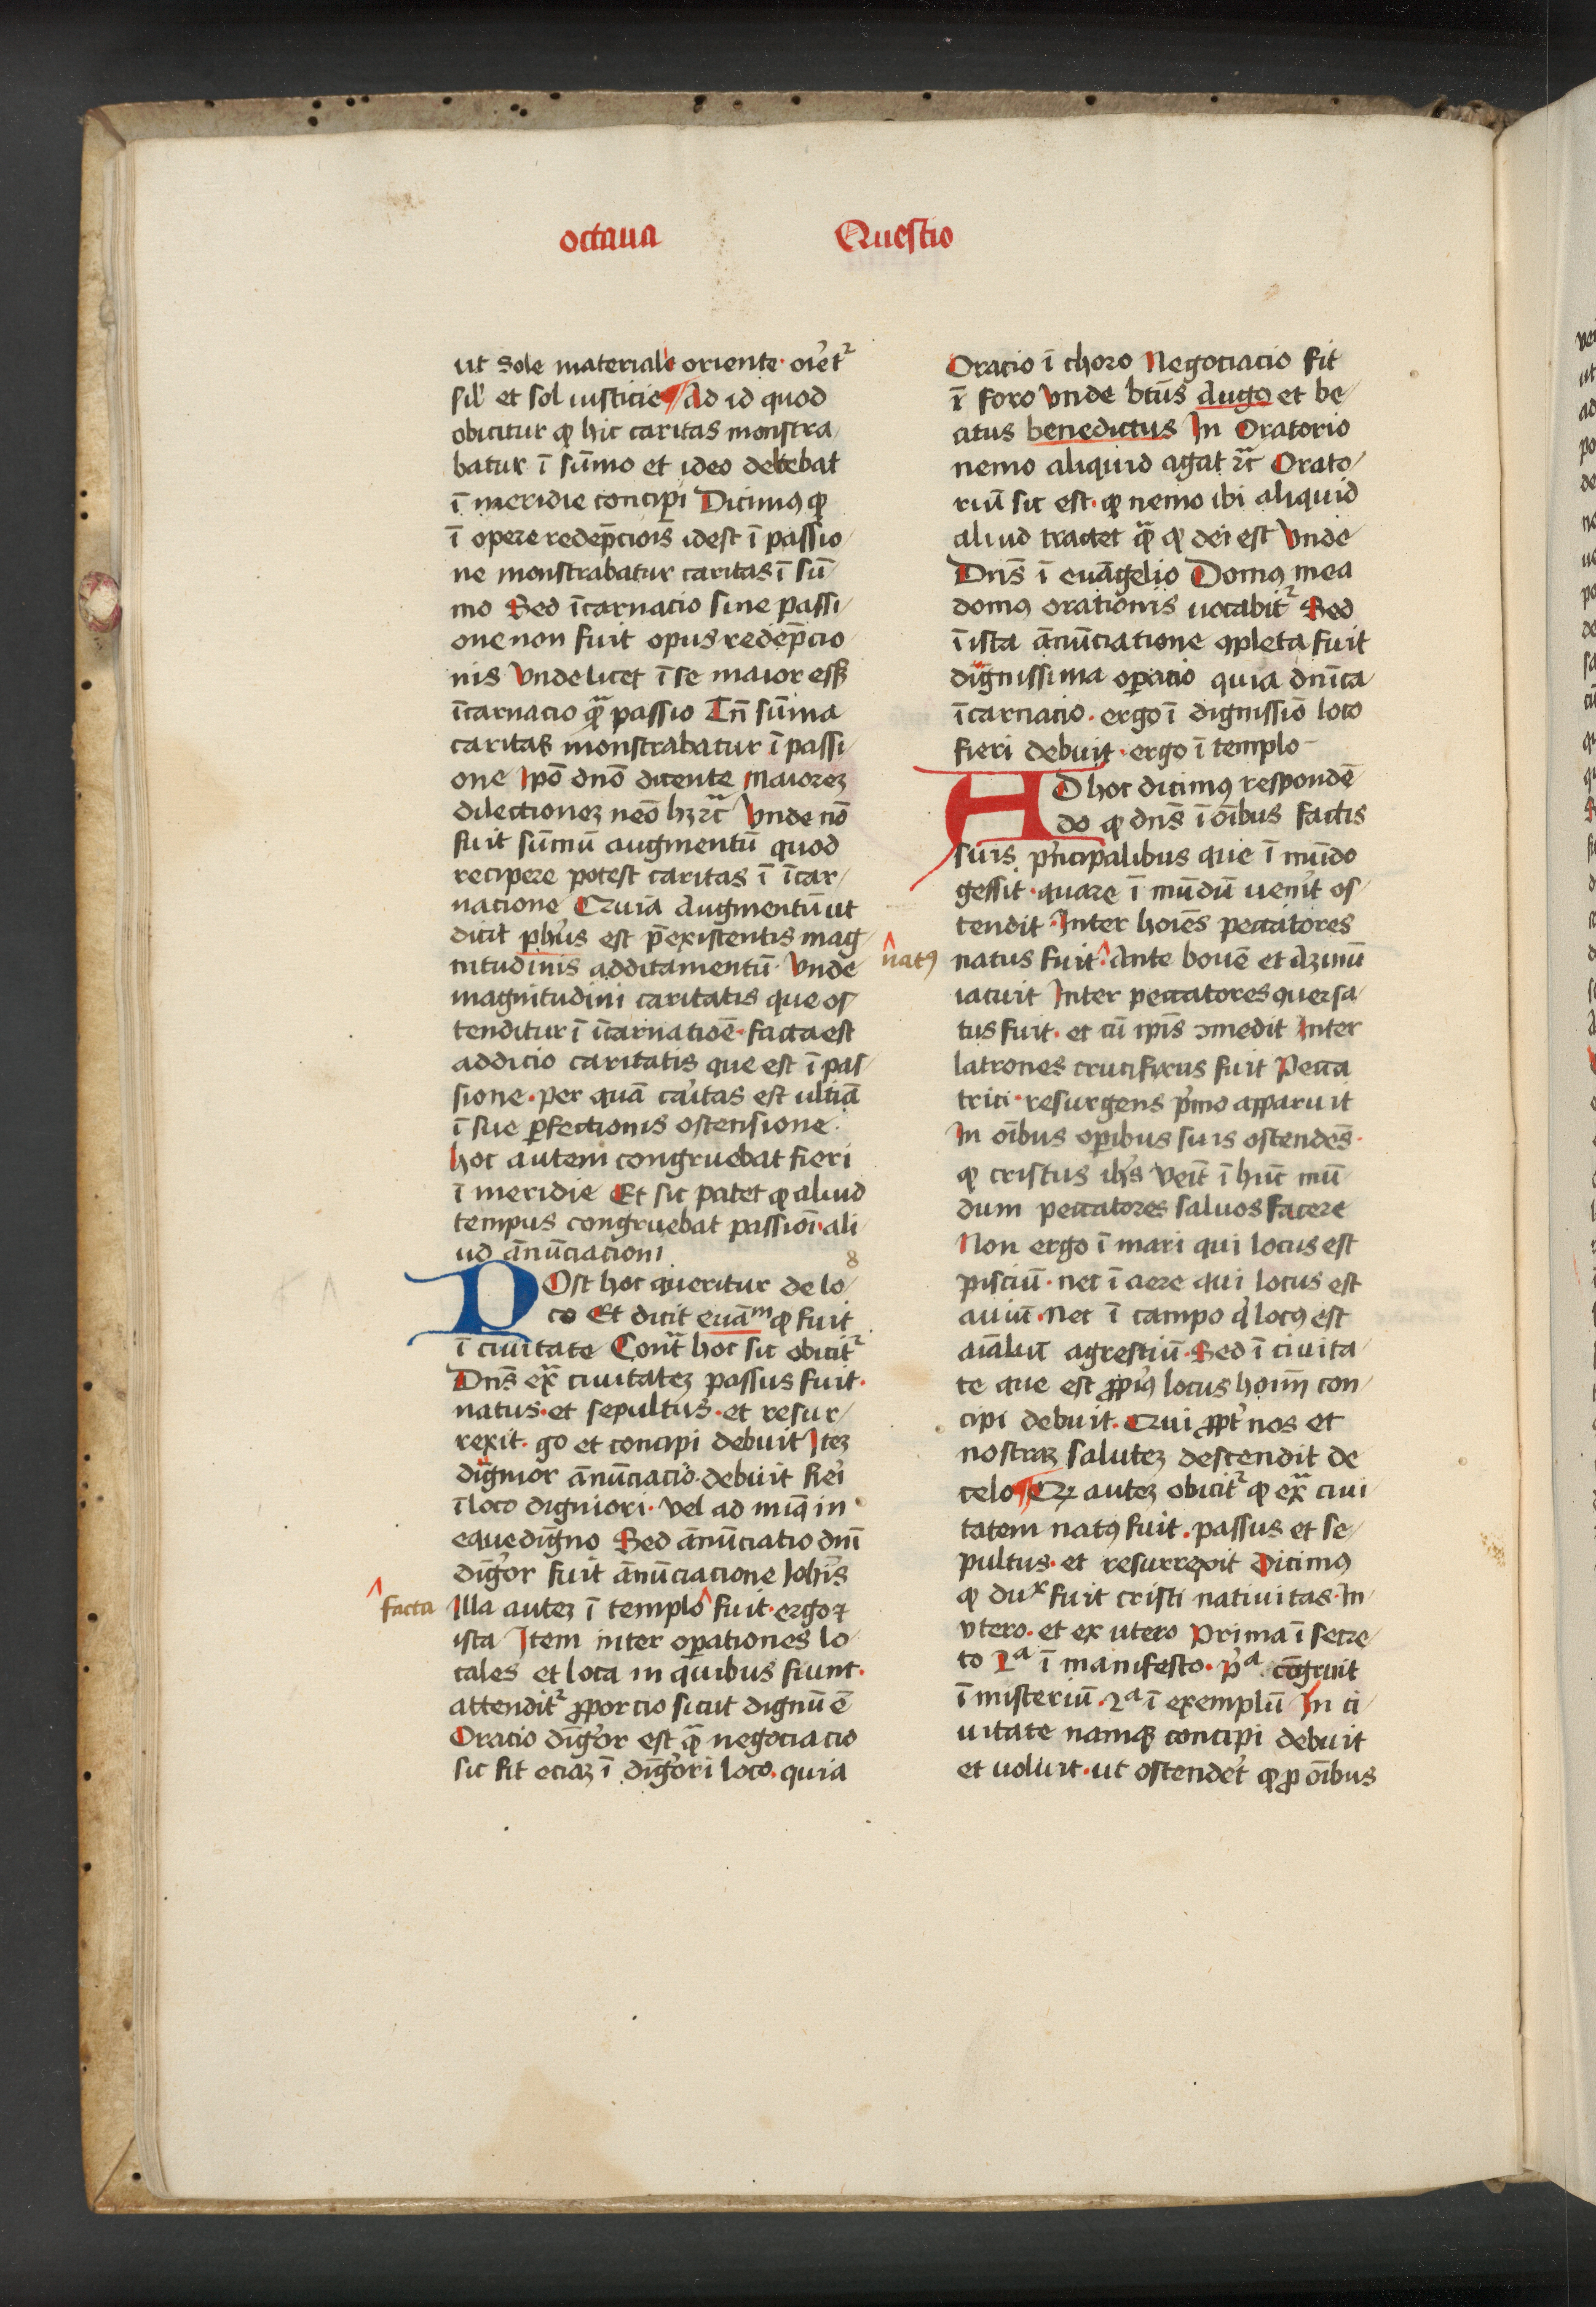 octaua Questio
ut sole materiale oriente· oīet᷑
sil̛ et sol iusticie ¶ Ad id quod
obicitur ꝙ hic caritas monstra/
batur ī sūmo et ideo debebat
ī meridie concipi Dicimꝰ ꝙ
ī opere redēpcioīs idest ī passio/
ne monstrabatur caritas ī sū/
mo Sed īcarnacio sine passi/
one non fuit opus redēpcio/
nis Vnde licet ī se maior eēt
īcarnacio qᷓ passio Tn̄ sūma
caritas monstrabatur ī passi/
one Ipō dn̄o dicente Maiorez
dilectionez nēo hꝫ ⁊c̄ Vnde nō
fuit sūmū augmentū quod
recipere potest caritas ī īcar/
nacione Quia Augmentū ut
dicit ph̄us est p̄existentis mag/
nitudinis additamentū· Vnde
magnitudini caritatis que os/
tenditur ī īcarnatiōe· facta est
addicio caritatis que est ī pas/
sione· per quā caritas est ultīa
ī sue ꝑfectionis ostensione·
hoc autem congruebat fieri
ī meridie Et sic patet ꝙ aliud
tempus congruebat passioni· ali/
ud ānūciacioni 8
POst hoc queritur de lo/
co Et dicit euāᵐ ꝙ fuit
ī ciuitate Cont̄ hoc sic obicit᷑
Dn̄s exᷓ ciuitatez passus fuit·
natus· et sepultus· et resur/
rexit· go et concipi debuit Itez
dignior ānūciacio· debuit fieī
ī loco digniori· vel ad minꝰ in
eque digno Sed ānūciatio dn̄i
dig̛or fuit ānūciacione Ioh̄is
facta
Illa autez ī templo ^ fuit· ergo ⁊
ista Item inter oꝑationes lo/
cales et loca in quibus fiunt·
attendit᷑ ꝓporcio sicut dignū ē
Oracio dig̛or est qᷓ negociacio
sic fit eciaz ī dig̛ori loco· quia
Oracio ī choro Negociacio fit
ī foro Vnde bt̄us Augꝰ et be/
atus benedictus In Oratorio
nemo aliquid agat ⁊c̄ Orato/
riū sic est· ꝙ nemo ibi aliquid
aliud tractet qᷓ ꝙ dei est Vnde
Dn̄s ī euāgelio Domꝰ mea
domꝰ orationis uocabit᷑ Sed
ī ista ānūciatione ꝯpleta fuit
dignissima oꝑacio quia dn̄ica
īcarnacio· ergo ī dignissīo loco
fieri debuit· ergo ī templo
AD hoc dicimꝰ respondē/
do ꝙ dn̄s ī oībus factis
suis pͥncipalibus que ī mūdo
gessit· quare ī mūdū uenit os/
tendit· Inter hoīes peccatores
natꝰ
natus fuit ^ Ante bouē et Azinū
iacuit Inter peccatores ꝯuersa/
tus fuit· et cū ip̄is ꝯmedit Inter
latrones crucifixus fuit Pecca
trici· resurgens pͥmo apparuit
In oībus oꝑibus suis ostendēs·
ꝙ cristus ih̄s veīt ī hūc mū
dum peccatores saluos facere
Non ergo ī mari qui locus est
pisciū· nec ī aere qui locus est
auiū· Nec ī campo qͥ locꝰ est
aīaliū agrestiū· Sed ī ciuita/
te que est ꝓpͥꝰ locus hoīm con/
cipi debuit· Qui ꝓpt̄ nos et
nostraꝫ salutez descendit de
celo ¶ Qꝫ autez obicit᷑ ꝙ exᷓ ciui
tatem natꝰ fuit· passus et se/
pultus· et resurrexit Dicimꝰ
ꝙ duˣ fuit cristi natiuitas· In/
vtero· et ex utero Prima ī secre/
to 2ᵃ ī manifesto· pͥᵃ cōgruit
ī misteriū· 2ᵃ ī exemplū In ci/
uitate namqꝫ concipi debuit
et uoluit· ut ostenderet ꝙ ꝓ oībus